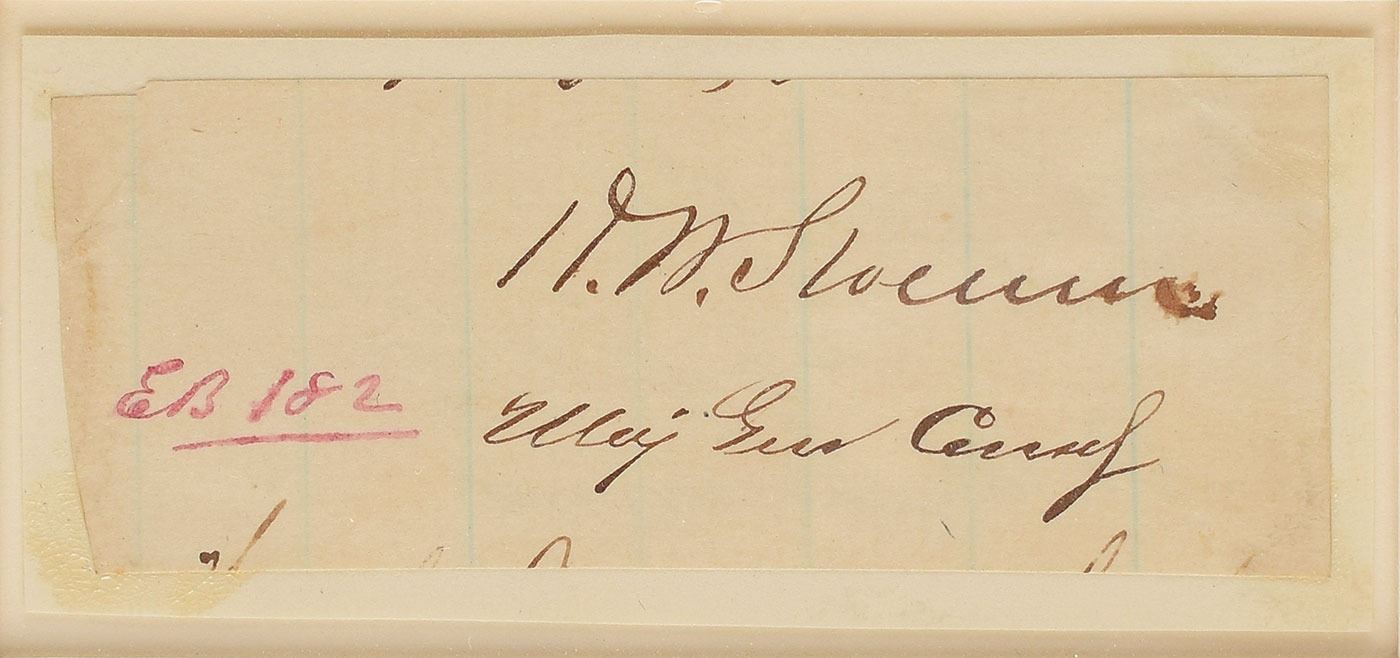 H. W. Slocum
EB 182
Maj Gen Comdg